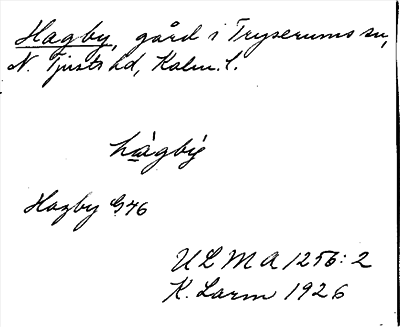 Hagby, gård i Tryserums sn,
N. Tjusts hd, Kalm. l.
hàgbý
Hagby G46
ULMA 1256:2
K. Larm 1926